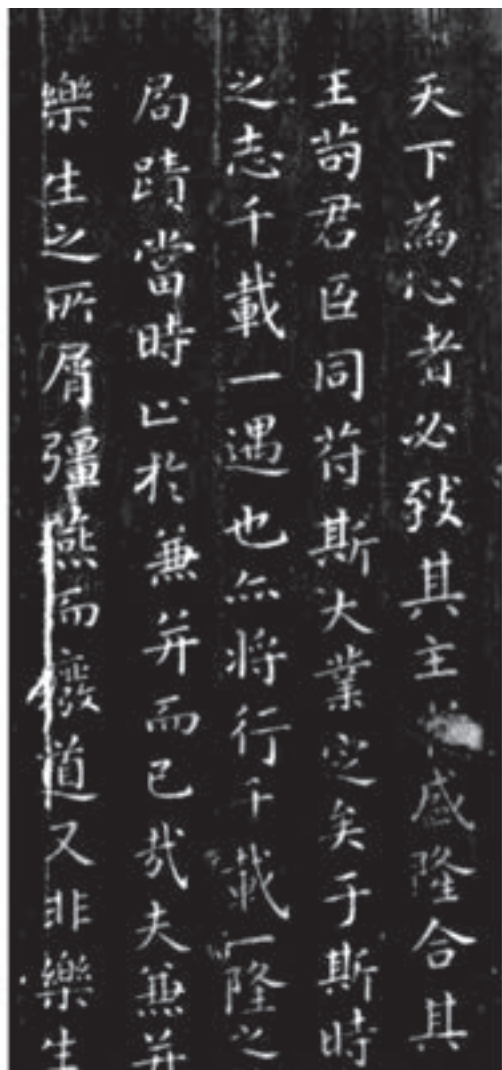 天下為心者必致其主於盛隆合其
王苟君臣同符斯大業定矣于斯時
之志千載一遇也亦將行千載一隆之
局蹟當時止於兼并而已哉夫兼并
樂生之所屑彊燕而廢道又非樂生